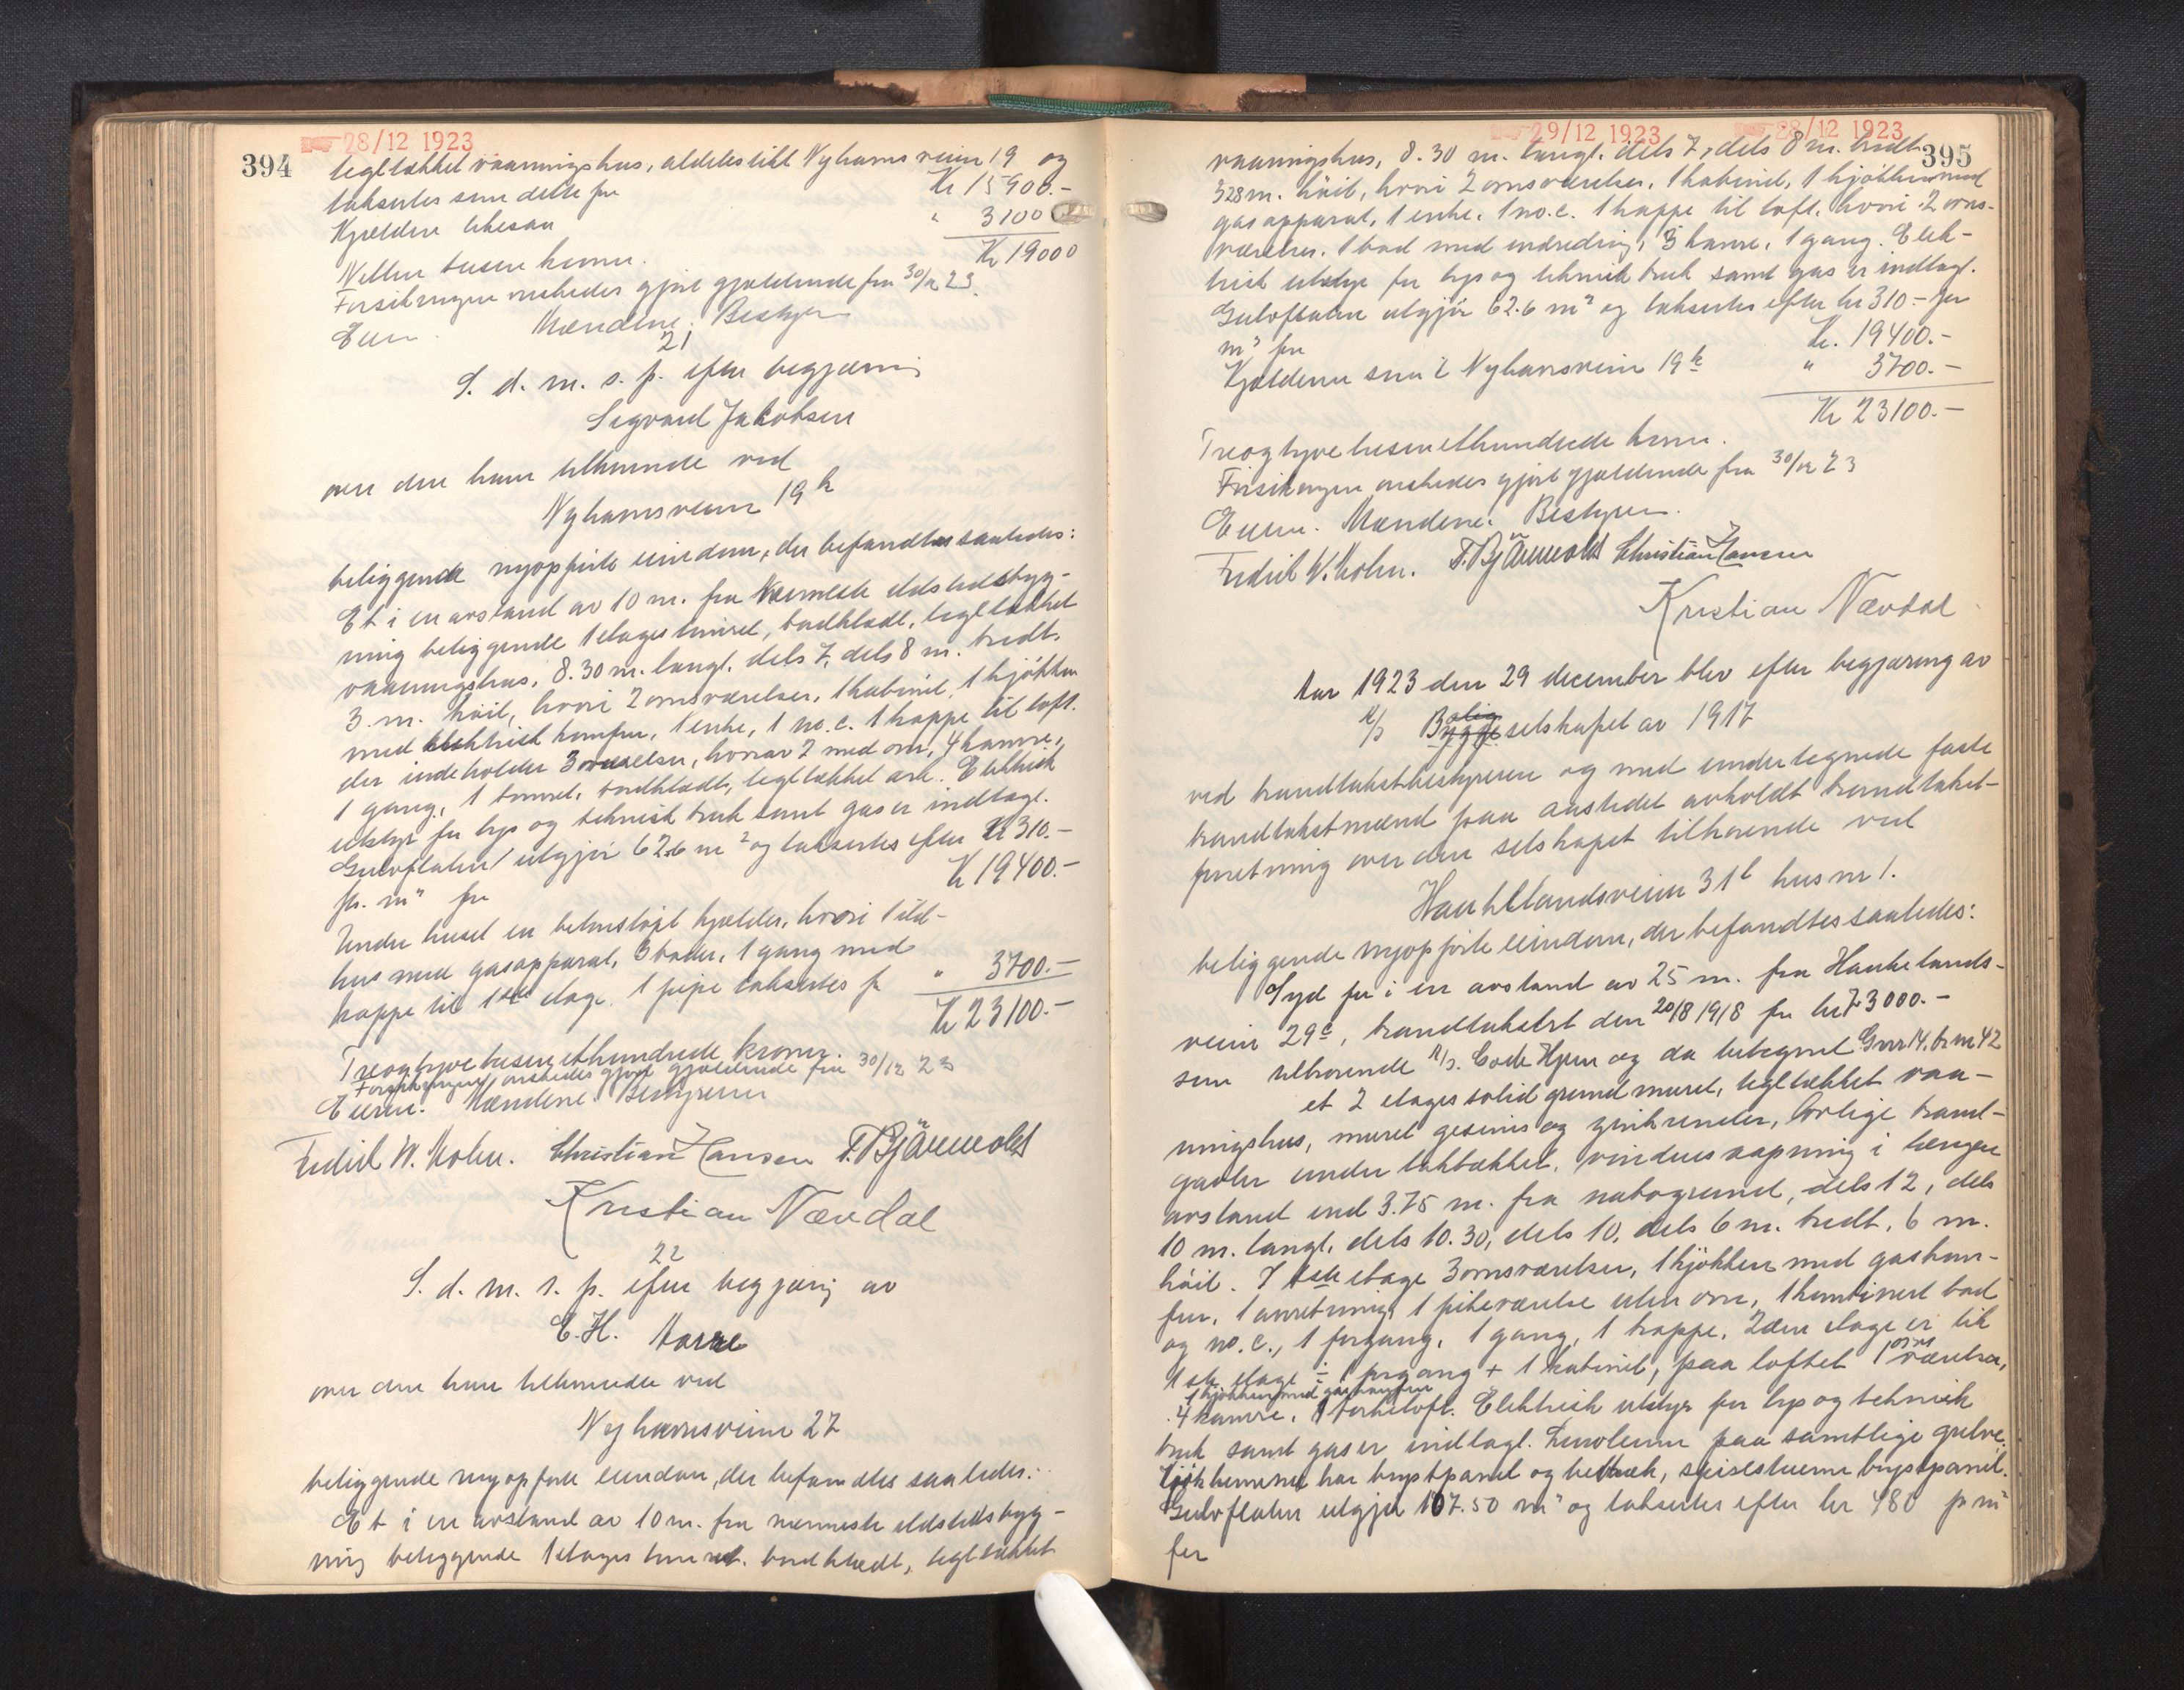 28/12 1923
394
tegltækket vaaningshus, aldeles likt Nyhavnsveien 19 og
takseres som dette for Kr 15900.-
Kjælderen likesaa " 3100
Kr 19000
Nitten tusen kroner.
Forsikringen ønskedes gjort gjældende fra 30/12 23.
Eieren. Mændene. Bestyreren
21
S. d. m. s. p. efter begjæring
Sigvard Jakobsen
over den ham tilhørende ved
Nyhavnsveien 19 k
beliggende nyopførte eiendom, der befandtes saaledes:
Et i en avstand av 10 m. fra nærmeste ildstedsbyg-
ning beliggende 1 etages tømret, bordklædt, tegltækket
vaaningshus, 8.30 m. langt, dels 7, dels 8 m. bredt.
3 m. høit, hvori 2 ovnsværelser, 1 kabinet, 1 kjøkken
med elektrisk komfyr, 1 entre, 1 w.c. 1 trappe til loft.
der indeholder 3 værelser, hvorav 2 med ovn, 4 kamre,
1 gang, 1 tømret, bordklædt, tegltækket ark. Elektrisk
utstyr for lys og teknisk bruk samt gas er indlagt.
Gulvflaten utgjør 62.6 m² og takseres efter kr 310.-
pr. m² for Kr 19400.-
Under huset en betonstøpt kjælder, hvori 1 ild-
hus med gasapparat, 3 boder, 1 gang med
trappe til 1ste etage. 1 pipe takseres for " 3700.-
Kr 23100.-
Treogtyvetusenethundrede kroner.
Forsikringen ønskedes gjort gjældende fra 30/12 23
Eieren. Mændene. Bestyreren
Fredrik W. Holm. Christian J Hansen T. Bjånnvold
Kristian Nævdal
22
S. d. m. s. p. efter begjæring av
E. H.
over den ham tilhørende ved
Nyhavnsveien 27
beliggende nyopførte eiendom, der befandtes saaledes:
Et i en avstand av 10 m. fra nærmeste ildstedsbyg-
ning beliggende 1 etages tømret, bordklædt, tegltækket
29/12 1923 28/12 1923
395
vaaningshus, 8.30 m. langt, dels 7, dels 8 m. bredt
3.28 m. høit, hvori 2 ovnsværelser, 1 kabinet, 1 kjøkken med
gasapparat, 1 entre, 1 w.c. 1 trappe til loft, hvori 2 ovns-
værelser, 1 bad med indredning, 3 kamre, 1 gang. Elek-
trisk utstyr for lys og teknisk bruk samt gas er indlagt.
Gulvflaten utgjør 62.6 m² og takseres efter kr 310.- per
m² for Kr. 19400.-
Kjælderen som i Nyhavnsveien 19 k " 3700.-
Kr 23100.-
Treogtyvetusenethundrede kroner.
Forsikringen ønskedes gjort gjældende fra 30/12 23
Eieren. Mændene. Bestyreren.
Fredrik W. Holm. T. Bjånnvold Christian J Hansen
Kristian Nævdal
Aar 1923 den 29 december blev efter begjæring av
A/S Bygge Bolig selskapet av 1917
ved brandtakstbestyreren og med undertegnede faste
brandtakstmænd paa aastedet avholdt brandtakst-
forretning over den selskapet tilhørende ved
Haukelandsveien 31 b hus nr 1.
beliggende nyopførte eiendom, der befandtes saaledes:
Syd for i en avstand av 25 m. fra Haukelands-
veien 29 c, brandtakstert den 20/8 1918 for kr 73000.-
som tilhørende A/S. Gode Hjem og da betegnet Gnr 14. br nr 42
et 2 etages solid grundmuret, tegltækket vaa-
ningshus, muret gesims og zinkrender, lovlige brand-
gavler under taktækket, vindusaapning i længere
avstand end 3.75 m. fra nabogrund, dels 12, dels
10 m. langt, dels 10.30, dels 10, dels 6 m. bredt, 6 m.
høit. I 1ste etage 3 ovnsværelser, 1 kjøkken med gaskom-
fyr, 1 anretning, 1 pikeværelse uten ovn, 1 kombinert bad
og w.c., 1 forgang, 1 gang, 1 trappe. 2den etage er lik
1ste etage ÷ 1 forgang + 1 kabinet, paa loftet 1 ovns værelse,
1 kjøkken med gaskomfyr
4 kamre, 1 tørkeloft. Elektrisk utstyr for lys og teknisk
bruk samt gas er indlagt. Linoleum paa samtlige gulve.
Kjøkkenerne har brystpanel og betræk, spisestuerne brystpanel.
Gulvflaten utgjør 107.50 m² og takseres efter kr 480 pr m²
for